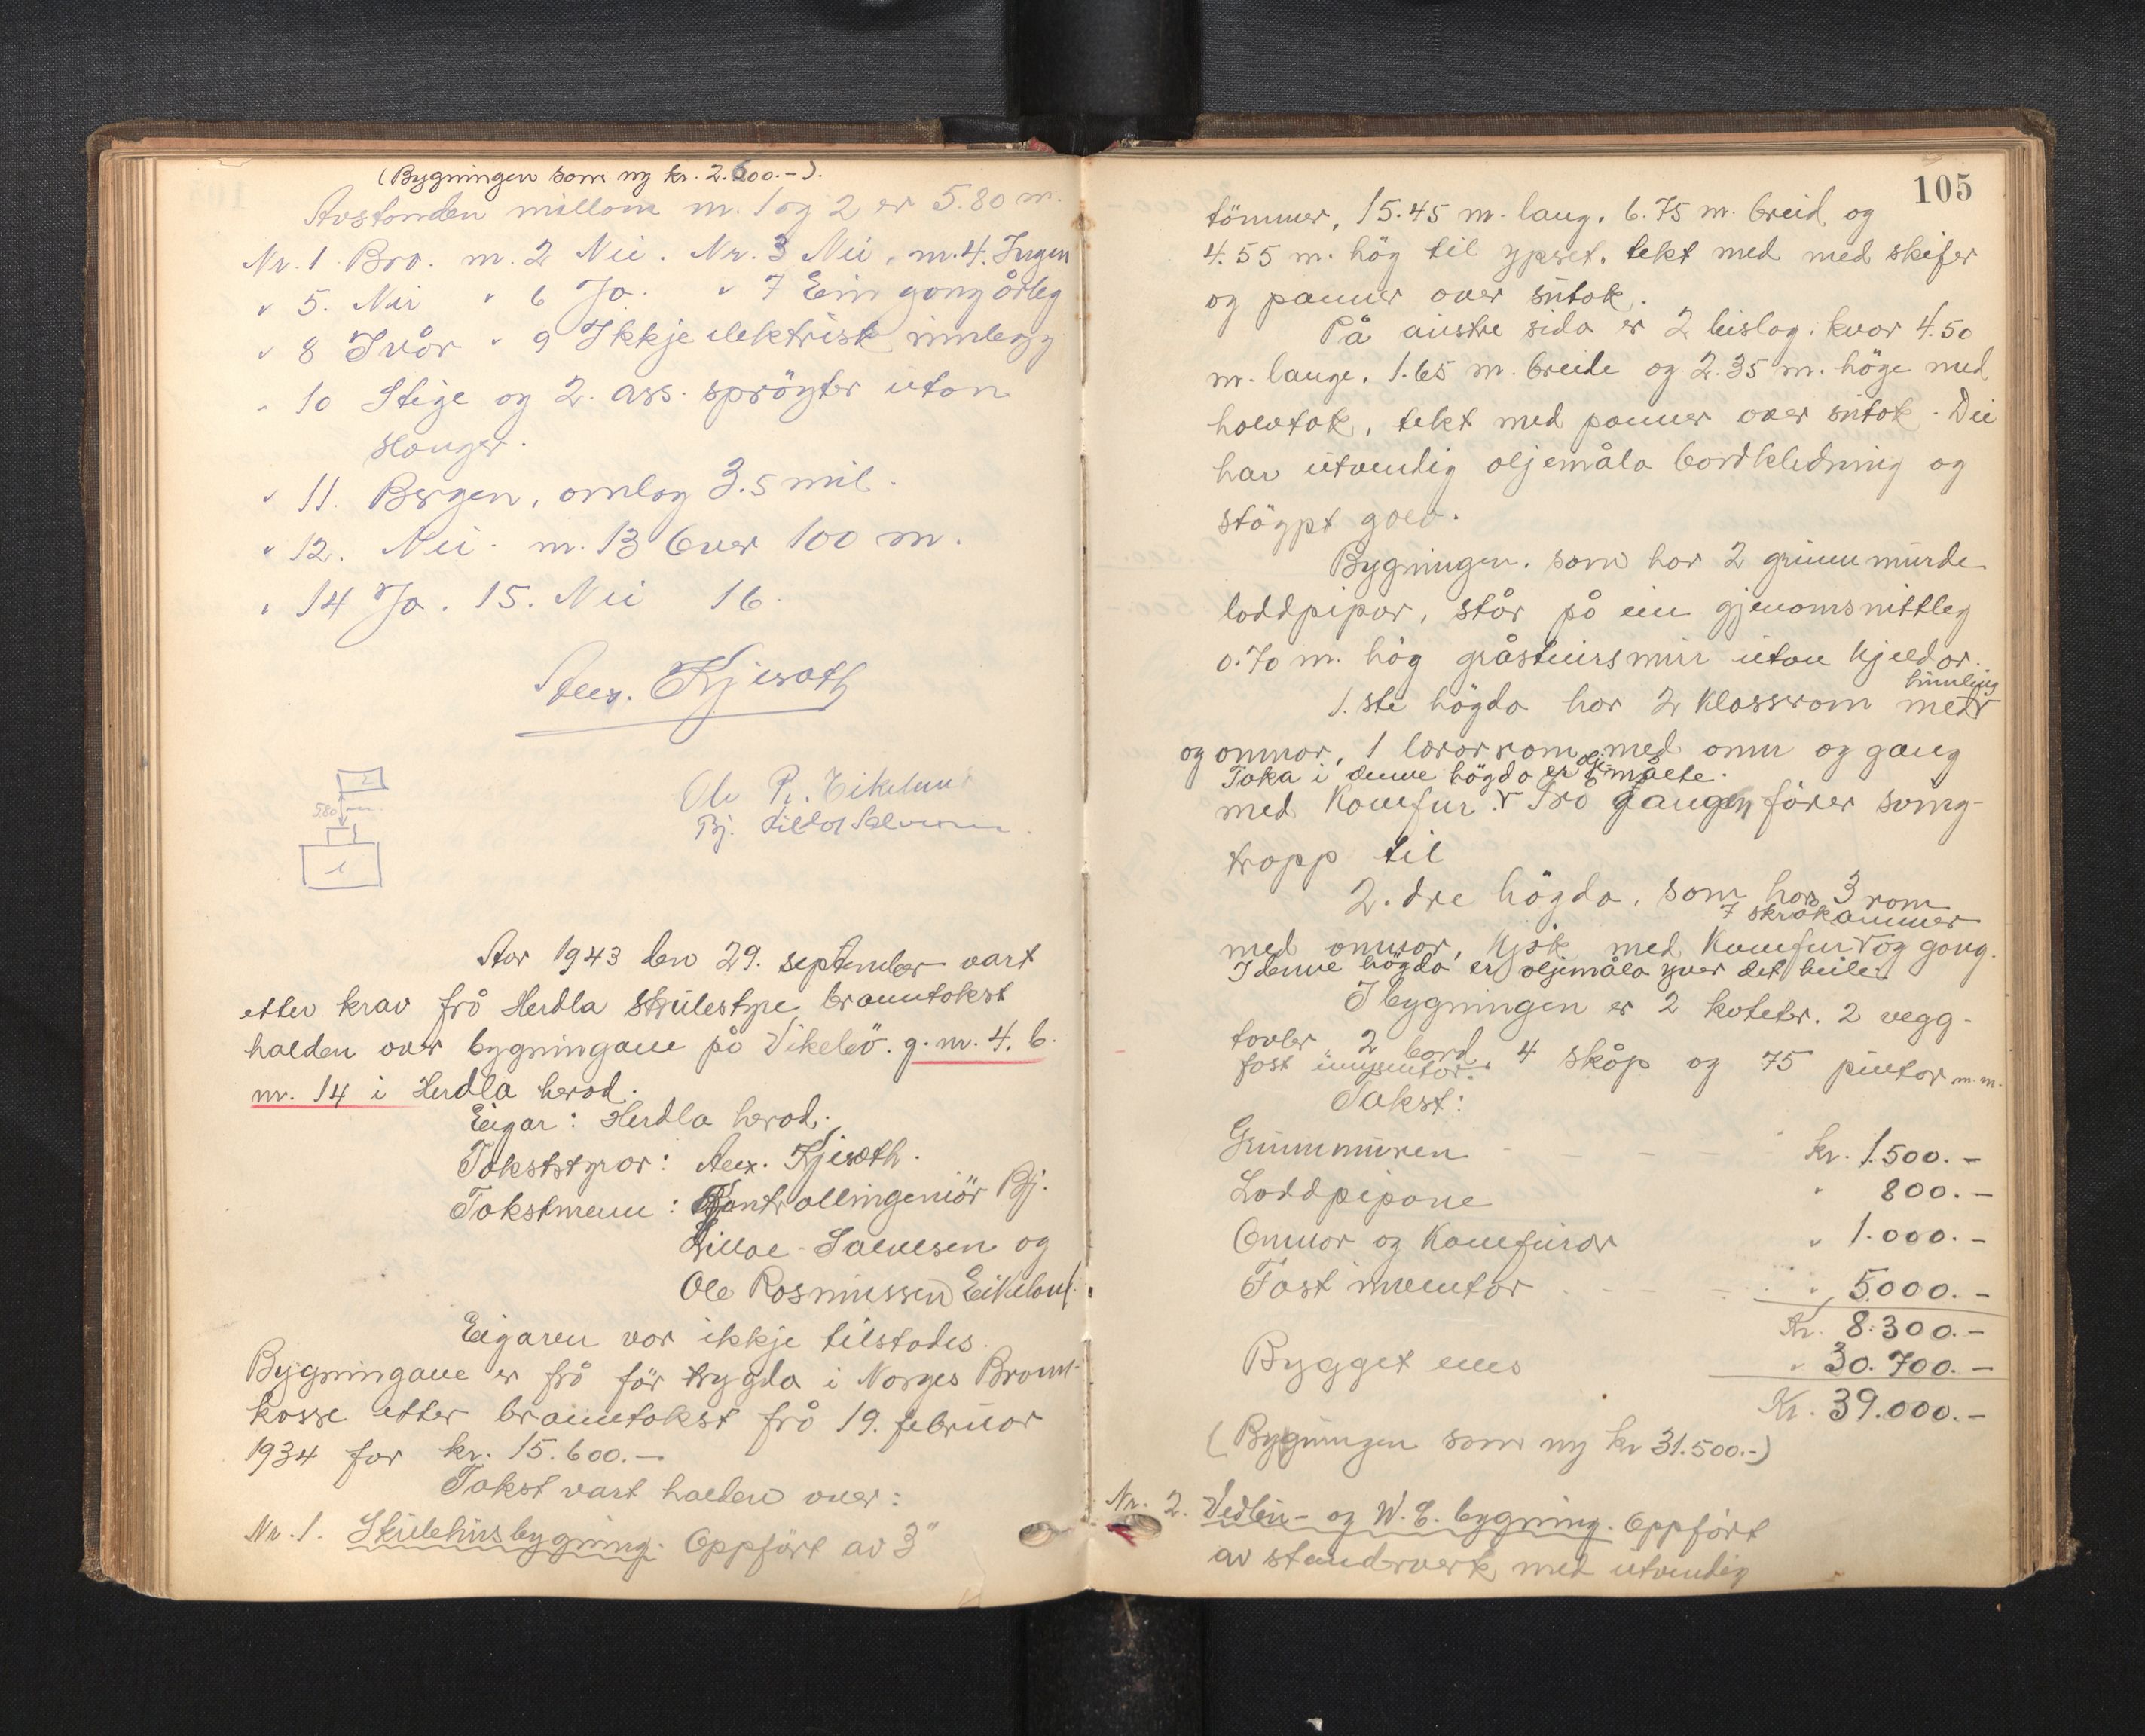 (Bygningen som ny kr. 2.600.-).
Avstanden millom nr. 1 og 2 er 5.80 m.
Nr. 1. Bra. nr. 2 Nei. Nr. 3 Nei, nr. 4. Ingen
" 5. Nei " 6 Ja. " 7 Ein gong årleg
" 8 Svår " 9 Ikkje elektrisk innlegg
" 10 Stige og 2. ass. sprøyter utan
slanger.
" 11. Bergen, omlag 3.5 mil.
" 12. Nei. nr. 13 Over 100 m.
" 14 Ja. 15. Nei 16.
Alex. Kjeseth
Ole R. Eikeland
Bj. Lilloe Salvesen.
2
580 m.
1
Aar 1943 den 29. september vart
etter krav frå Herdla skulestyre branntakst
halden over bygningane på Vikebö. g. nr. 4. b.
nr. 14 i Herdla herad.
Eigar: Herdla herad.
Takststyrar: Alex. Kjeseth.
Takstmenn: Kontrollingeniör Bj.
Lilloe-Salvesen og
Ole Rasmussen Eikeland.
Eigaren var ikkje tilstades.
Bygningane er frå för trygda i Norges Brann-
kasse etter branntakst frå 19. februar
1934 for kr. 15.600.-
Takst vart halden over:
Nr. 1. Skulehusbygning. Oppfört av 3"
105
tömmer, 15.45 m. lang, 6.75 m. breid og
4.55 m. hög til ypset, tekt med med skifer
og panner over sutak.
På austre sida er 2 bislag, kvar 4.50
m. lange, 1.65 m. breide og 2.35 m. höge med
halvtak, tekt med panner over sutak. Dei
har utvendig oljemåla bordkledning og
stöypt golv.
Bygningen, som har 2 grunnmurde
loddpipor, står på ein gjenomsnittleg
0.70 m. hög gråsteinsmur utan kjeldar.
himling
1.ste högda har 2 klasserom med
og omnar, 1 lærarrom med omn og gang
Taka i denne högda er oljemålte.
med komfur. Frå gangen förer sving-
trapp til
2. dre högda, som har 3 rom
7 skråkammer
med omnar, kjøk med komfur og gang.
I denne högda er oljemåla yver det heile
I bygningen er 2 kateter, 2 vegg-
tavler, 2 bord, 4 skåp og 75 pultar m.m.
fast inventar.
Takst:
Grunnmuren kr. 1.500.-
Loddpipone " 800.-
Omnar og komfurar " 1.000.-
Fast inventar " 5.000.-
Kr. 8.300.-
Bygget elles " 30.700.-
Kr. 39.000.-
(Bygningen som ny kr 31.500.-)
Nr. 2. Vedbu- og W.C. bygning. Oppfört
av standerverk med utvendig